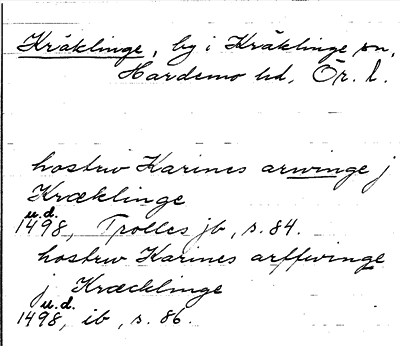 Kräklinge, by i Kräklinge sn,
Hardemo hd, Ör. l.
hostrw Karines arwinge j
Kræklinge
u.d.
1498, Trolles jb, s. 84.
hostrw Karines arffwinge
j Kræcklinge
u.d.
1498, ib, s. 86.